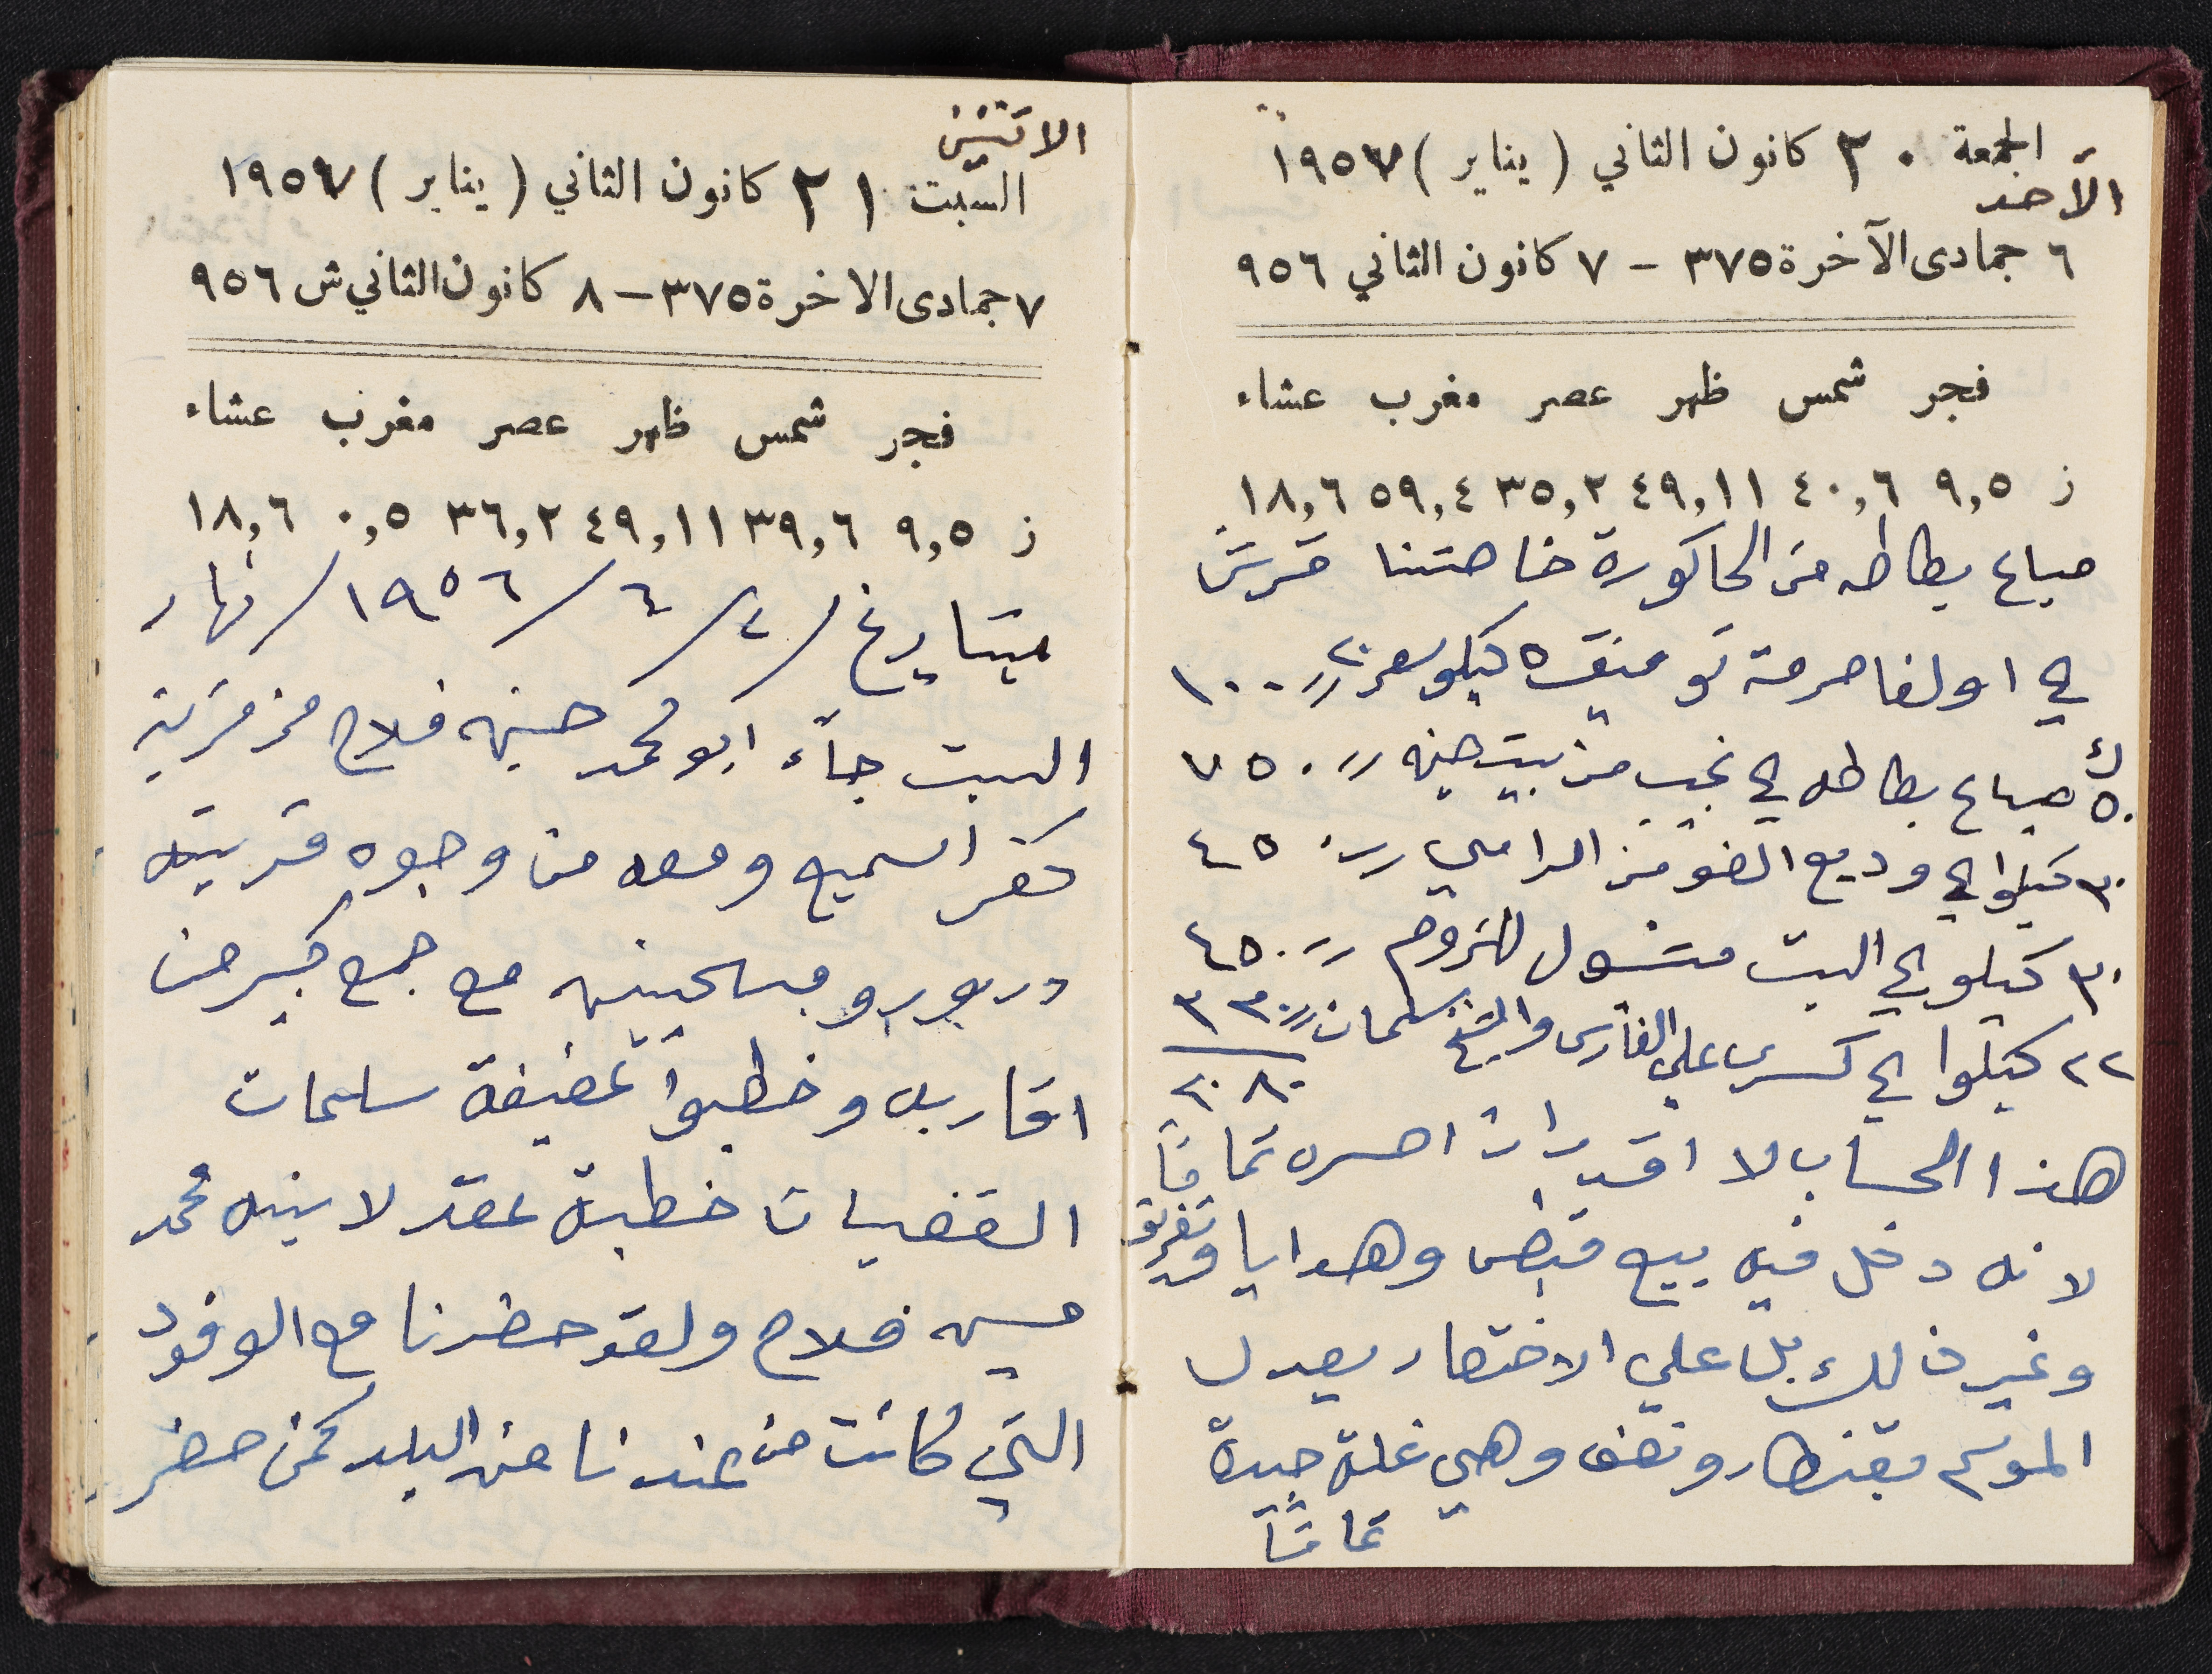 الجمعة ٢٠ كانون الثاني ( يناير ) ١٩٥٧
الأحد
٦ جمادى الآخرة ٣٧٥ - ٧ كانون الثاني ٩٥٦
فجر شمس ظهر عصر مغرب عشاء
ز ٩,٥ ٤٠,٦ ٤٩,١١ ٣٥,٢ ٥٩,٤ ١٨,٦
مباع بطاطه من الحاكورة خاصتنا قرش
الى اولفا حرمة توفيق ٥ كيلو سعر ٢٠ // ١٠٠
٥٠ ك مباع بطاطه الى نجيب من بيت جنه // ٧٥٠
٣٠ كيلو الى وديع الضو من الرامي // ٤٥٠
٣٠ كيلو الى البيت // ٤٥٠
٢٢ كيلوا الى كسرى علي الفارس والشيخ سلمان // ٣٣٠
٢٠٨٠
هذا الحساب لا اقدر ان احصره تماماً
لانه دخل فيه بيع قبض وهدايا وتفريق
وغير ذلك بل على الاختصار يعدل
الموسم بقنطار ونصف وهي غلة جيدة
تماماً
الاثنين
السبت ٢١ كانون الثاني ( يناير ) ١٩٥٧
٧ جمادى الاخرة ٣٧٥ - ٨ كانون الثاني ش ٩٥٦
فجر شمس ظهر عصر مغرب عشاء
ز ٩,٥ ٣٩,٦ ٤٩,١١ ٣٦,٢ ٠,٥ ١٨,٦
بتاريخ / ٤ / ١٩٥٦ / نهار
السبت جاء ابو محمد حسين فلاح من قرية
كفر اسميع ومعه من وجوه قريته
مع جمع كبير من
اقاربه وخطبوا عفيفة سلمان
القضبان خطبة عقد لابنه محمد
حسين فلاح ولقد حضرنا مع الوفود
التي كانت من عندنا من البلد حضر